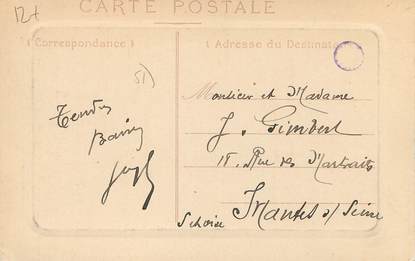 12+
CARTE POSTALE
( Correspondance )
( Adresse du Destinat
51)
Tendres
Baisers
Monsieur et Madame
J. Gimbert
18. Rue des Martraits
Mantes s/ Seine